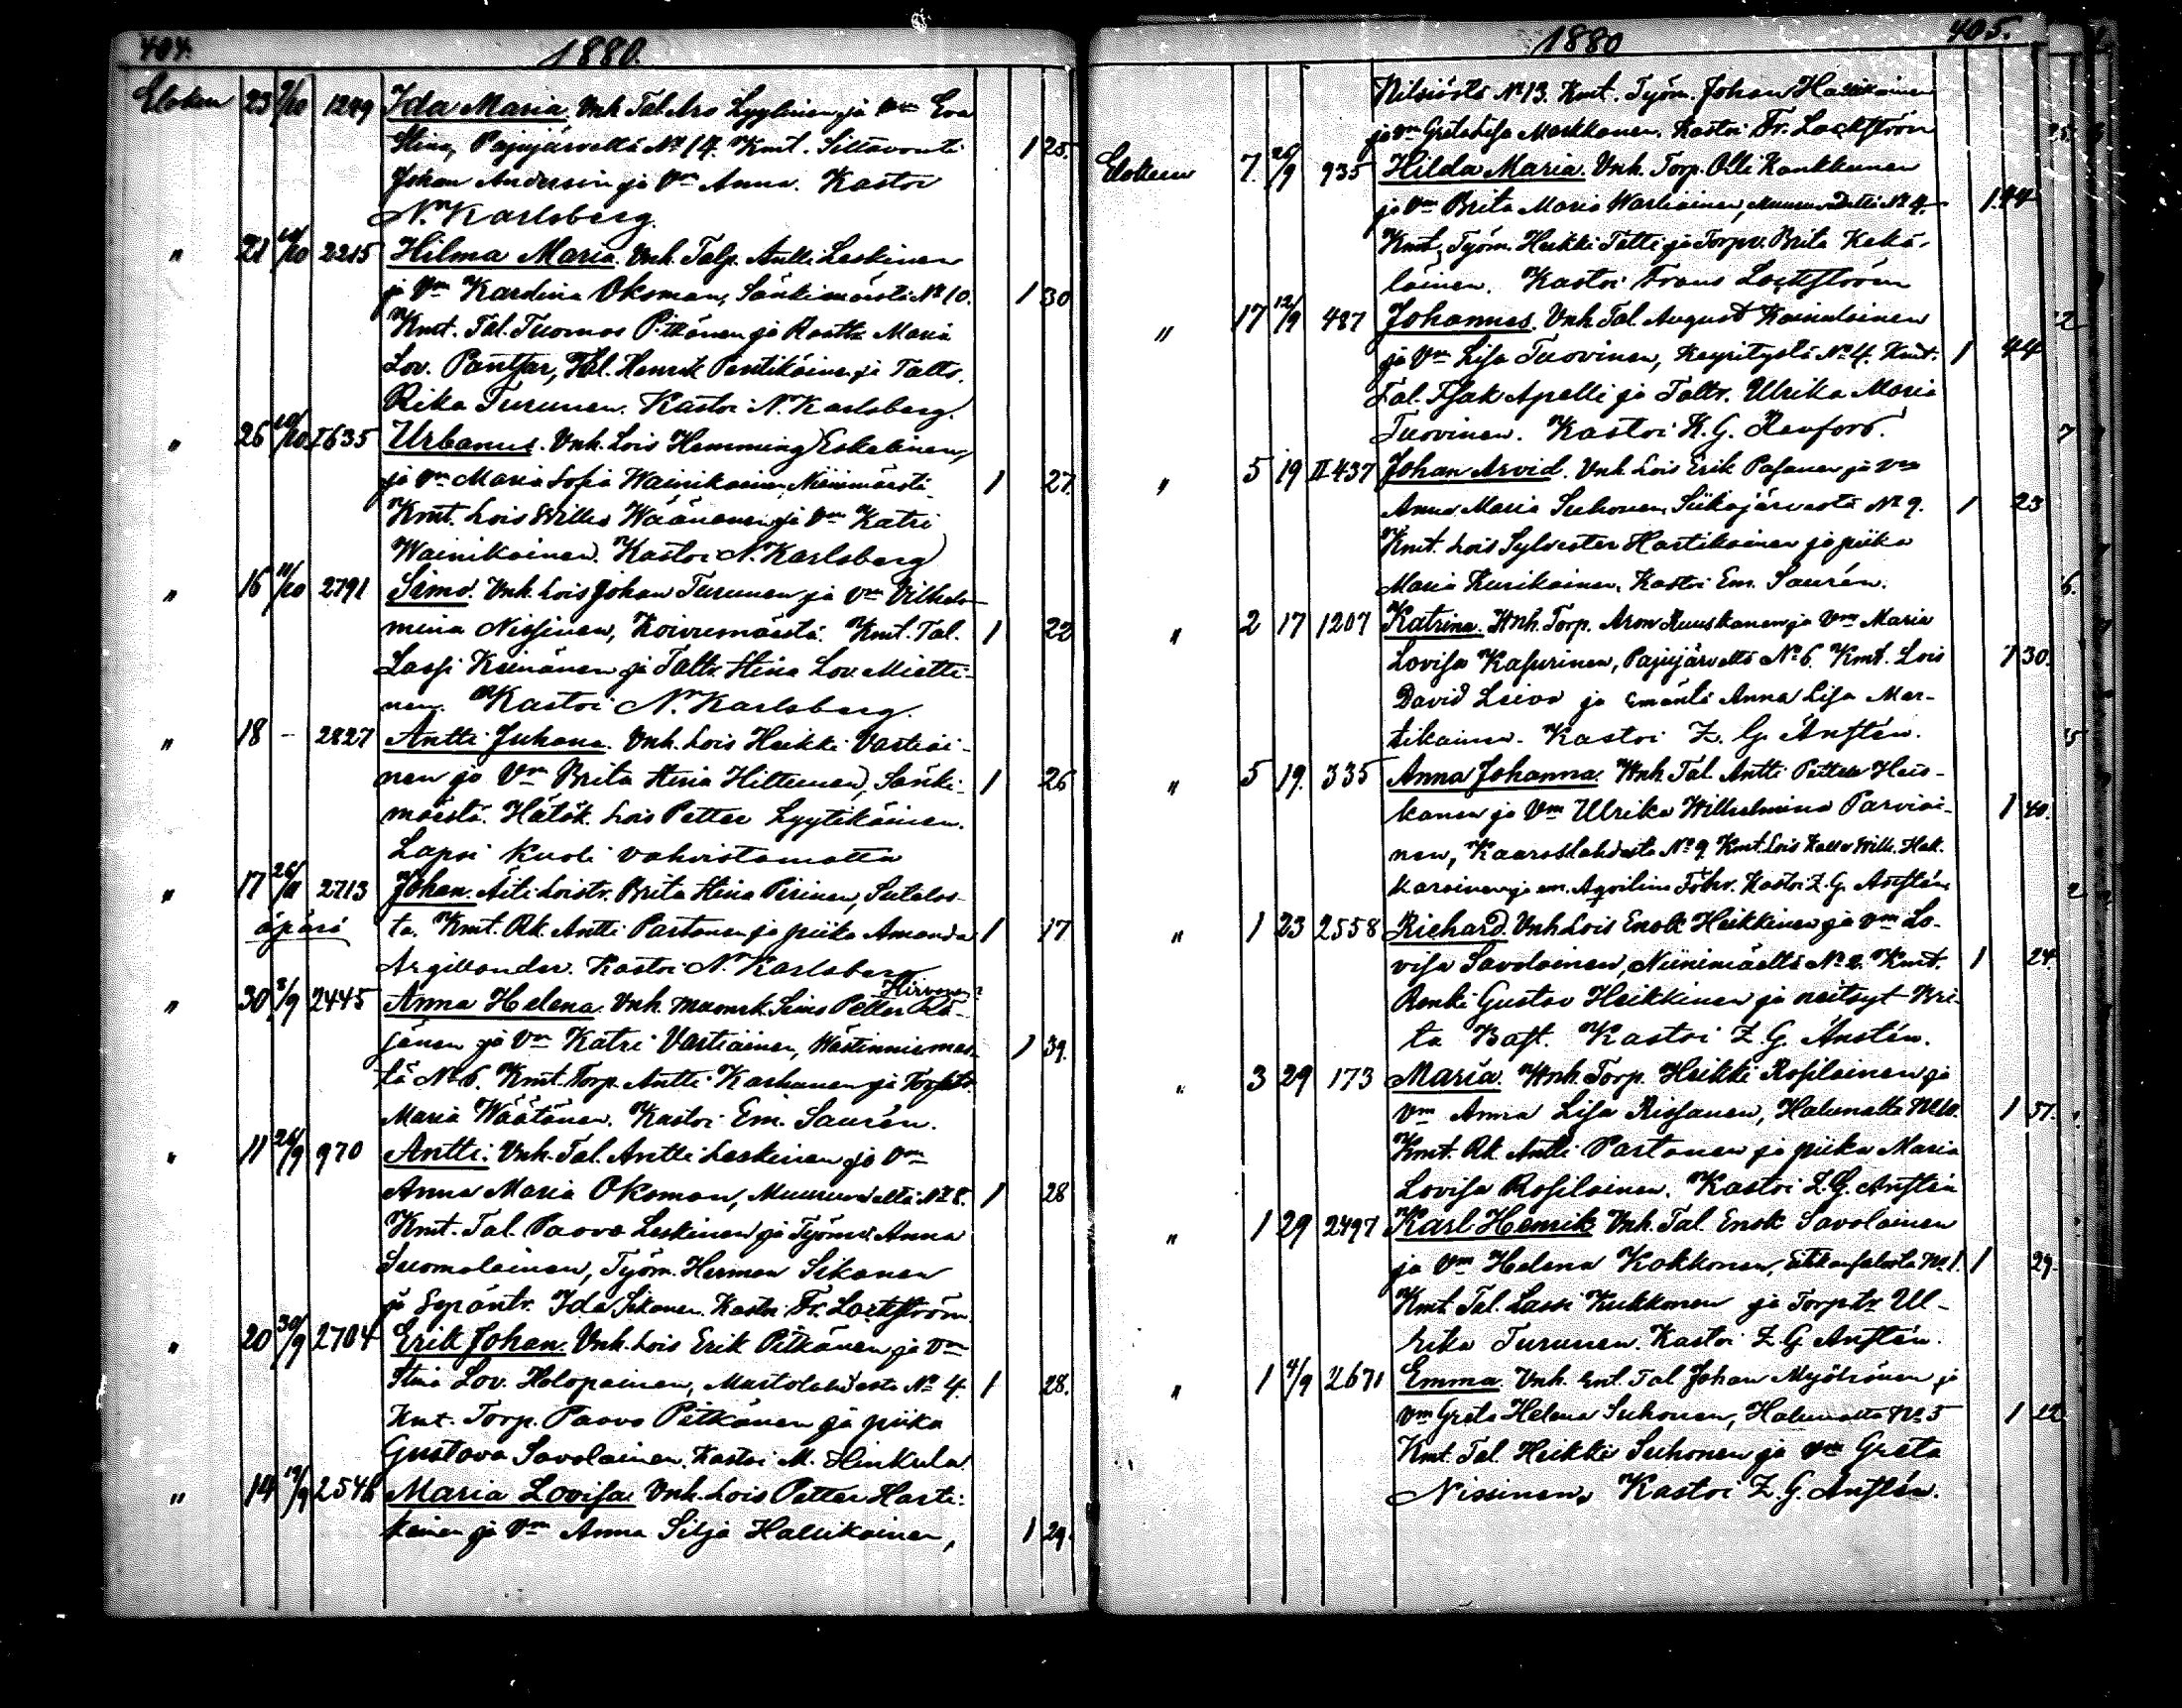 404.
1880.
Eloken 23 7/10 1249 Ida Maria. Vnh. Tal. Aro Lyytinen ja Vm Eva
Stina, Pajujärveltä No 14. Kmt. Siltavouti 1 25.
Johan Andersin ja Vm Anna. Kastoi
N. Karlsberg.
" 21 10/10 2215 Hilma Maria. Vnh. Talp. Antti Leskinen
ja Vm Karolina Oksman, Sänkimäestä No 10. 1 30
Kmt. Tal. Tuomas Pitkänen ja Raatts. Maria
Lov. Pantsar, Tal. Henrik Pentikäinen ja Talts.
Rika Turunen. Kastoi N. Karlsberg.
" 26 10/10 I635 Urbanus. Vnh. Lois Hemming Eskelinen,
ja Vm Maria Sofia Wainikainen, Niinimäestä 1 27.
Kmt. Lois Wille Wäänänen ja Vm Katri
Wainikainen. Kastoi N. Karlsberg
" 16 11/10 2791 Simo. Vnh. Lois Johan Turunen ja Vm Vilhel-
mina Nissinen, Koivumäestä. Kmt. Tal. 1 22
Lassi Keinänen ja Taltr. Stina Lov. Mietti-
nen. Kastoi N. Karlsberg.
" 18 - 2827 Antti Juhana. Vnh. Lois Heikki Vartiai-
nen ja Vm Brita Stina Hiltunen, Sänki- 1 26
mäestä. Hätäk. Lois Petter Lyytikäinen.
Lapsi kuoli vahvistamatta
" 17 26/11 2713 Johan. Äiti Loistr. Brita Stina Piirinen, Sutelas-
äpärä ta. Kmt. Rk. Antti Partanen ja piika Amanda 1 17
Argillander. Kastoi N. Karlsberg
Hirvonen?
" 30 2/9 2445 Anna Helena. Vnh. Muonrk. Simo Petter Rä-
sänen ja Vm Katri Vartiainen, Västinniemes- 1 39.
tä No 6. Kmt. Torp. Antti Karhunen ja Torptr.
Maria Wäätänen. Kastoi Em. Saurén.
" 11 26/9 970 Antti. Vnh. Tal. Antti Leskinen ja Vm
Anna Maria Oksman, Muuruvedeltä No 8. 1 28
Kmt. Tal. Paavo Leskinen ja Työmv. Anna
Suomalainen, Työm. Herman Sikanen
ja Sepäntr. Ida Sikanen. Kastoi Fr. Lackström
" 20 30/9 2704 Erik Johan. Vnh. Lois Erik Pitkänen ja Vm
Stina Lov. Holopainen, Mustolahdesta No 4. 1 28.
Kmt. Torp. Paavo Pitkänen ja piika
Gustava Savolainen. Kastoi M. Hinkula
" 14 19/9 2548 Maria Lovisa. Vnh. Lois Petter Harti-
kainen ja Vm Anna Silja Hallikainen, 1 29.
1880
405.
Nilsiästä No 13. Kmt. Työm. Johan Hallikainen
ja Vm Greta Lisa Markkanen. Kastoi Fr. Lackström
Elokuu 7. 26/9 935 Hilda Maria. Vnh. Torp. Olli Kankkunen
ja Vm Brita Maria Wartiainen, Muuruvedelta No 9. 1.44
Kmt. Työm. Heikki Tetti ja Torpv. Brita Kekä-
läinen. Kastoi Frans Lackström
" 17 12/9 487 Johannes. Vnh. Tal. August Kainulainen
ja Vm Lisa Tuovinen, Keyritystä No 4. Kmt. 1 44
Tal. Isak Apelli ja Taltr. Ulrika Maria
Tuovinen. Kastoi K. G. Renfors.
" 5 19 II 437 Johan Arvid. Vnh. Lois Erik Pasanen ja Vm
Anna Maria Suhonen, Siikajärvestä No 9. 1 23
Kmt. Lois Sylvester Hartikainen ja piika
Maria Kurikainen. Kastoi Em. Saurén.
" 2 17 1207 Katrina. Vnh. Torp. Aron Ruuskanen ja Vm Maria
Lovisa Kasurinen, Pajujärveltä No 6. Kmt. Lois 1 30.
David Leivo ja emäntä Anna Lisa Mar-
tikainen. Kastoi Z. G. Ansten.
" 5 19. 335 Anna Johanna. Vnh. Tal. Antti Petter Heis-
kanen ja Vm Ulrika Wilhelmina Parviai- 1 40.
nen, Kaarslahdesta No 9. Kmt. Lois Kalle Wilh. Hak-
karainen ja em. Aqvilina Föhr. Kastoi Z. G. Ansten
" 1 23 2558 Richard. Vnh. Lois Enok Heikkinen ja Vm Lo-
visa Savolainen, Niinimäeltä No 2. Kmt. 1 24.
Renki Gustav Heikkinen ja neitsyt Bri-
ta Bast. Kastoi Z. G. Ansten.
" 3 29 173 Maria. Vnh. Torp. Heikki Rosilainen ja
Vm Anna Lisa Rissanen, Halunalta No 10. 1 37.
Kmt. Rk. Antti Partanen ja piika Maria
Lovisa Rosilainen. Kastoi Z. G. Ansten
" 1 29 2497 Karl Henrik. Vnh. Tal. Enok Savolainen
ja Vm Helena Kokkonen, No 1. 1 29.
Kmt. Tal. Lassi Kukkonen ja Torptr. Ul-
rika Turunen. Kastoi Z. G. Ansten.
" 1 4/9 2671 Emma. Vnh. ent. Tal. Johan Myöhänen ja
Vm Greta Helena Suhonen, Halunalta No 5 1 22
Kmt. Tal. Heikki Suhonen ja Vm Greta
Nissinen. Kastoi Z. G. Ansten.